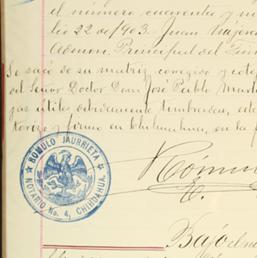 el número cuarenta y
lio 22 de 1903. Juan
Admon. Principal del Tim
Se sacó de su matriz, corregido y cote
del Señor Doctor Don José Pablo Mart
jas útiles debidamente timbradas, 
torizo y firmo en Chihuahua, en la f
Rómu
RÓMULO JAURRIETA
NOTARIO No. 4, CHIHUAHUA.
Bajo el nú